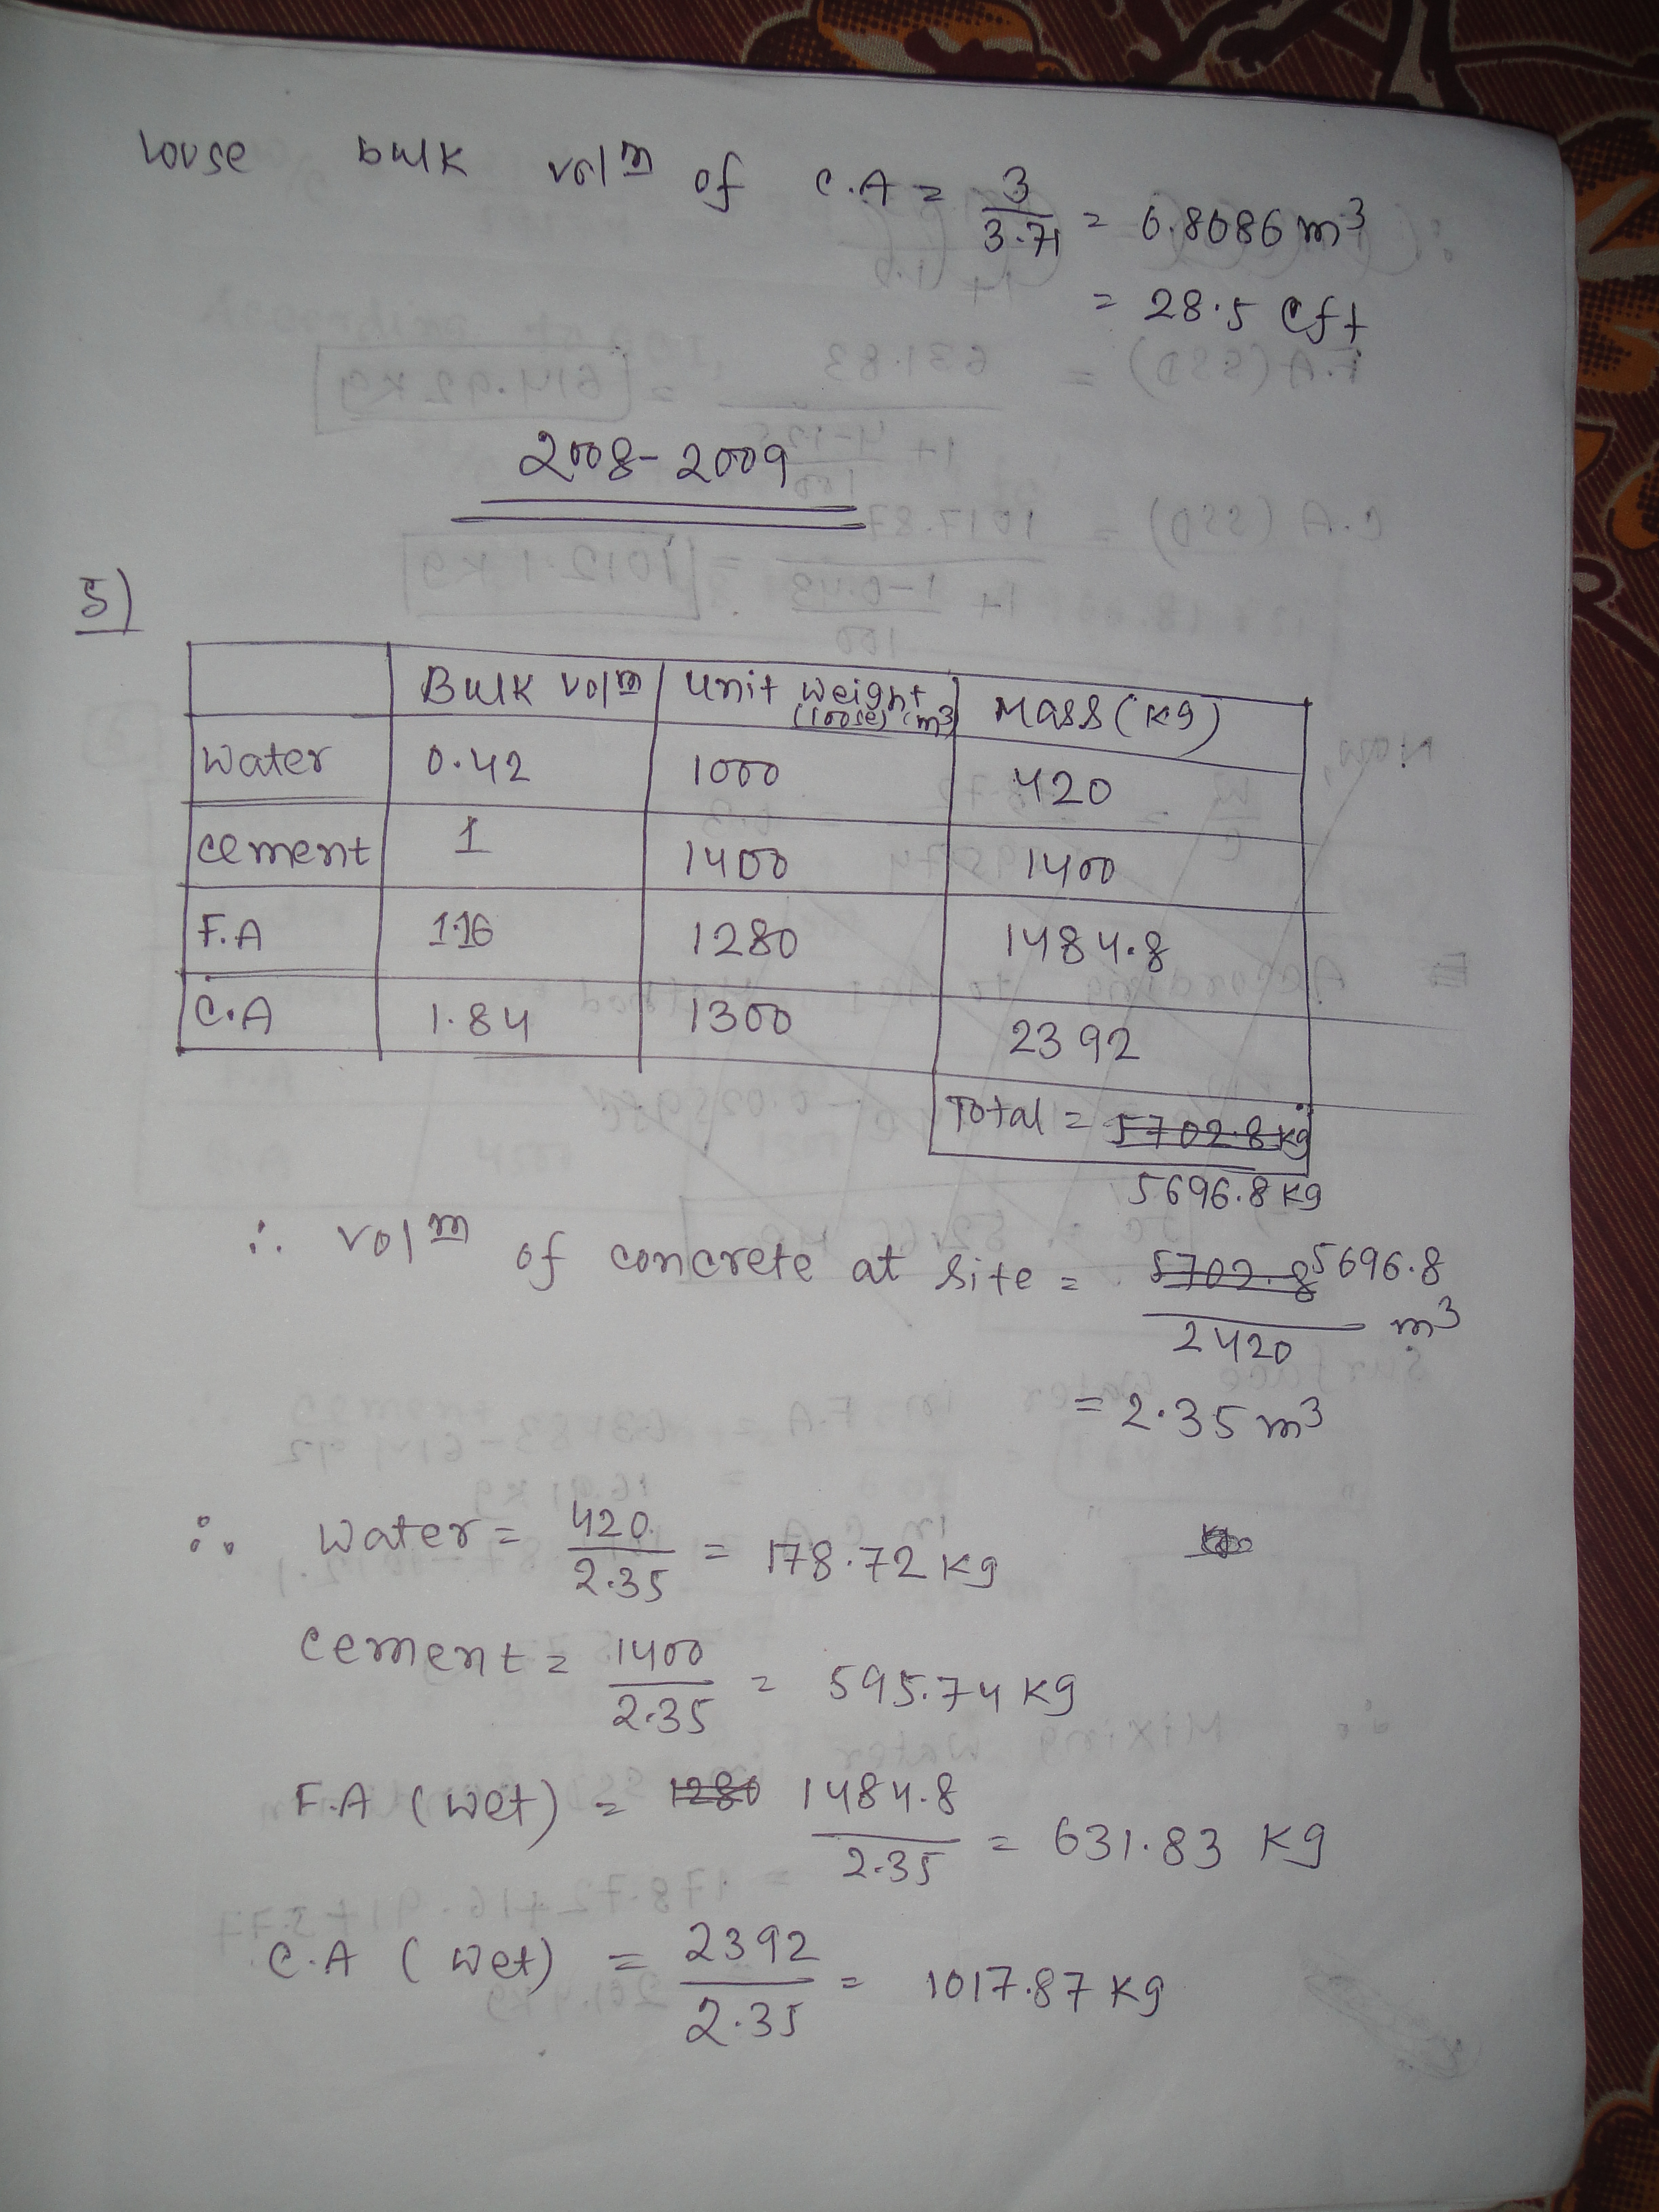 Loose bulk vol<u>m</u> of C.A = 3/3.71 = 0.8086 m³
= 28.5 cft
2008-2009
5)
Bulk Volm | Unit Weight (loose) (m³) | Mass (kg)
Water | 0.42 | 1000 | 420
Cement | 1 | 1400 | 1400
F.A | 1.16 | 1280 | 1484.8
C.A | 1.84 | 1300 | 2392
Total = 5702.8 kg
5696.8 kg
∴ Volm of concrete at site = 5702.8 5696.8 / 2420 m³
= 2.35 m³
∴ Water = 420/2.35 = 178.72 kg
Cement = 1400/2.35 = 595.74 kg
F.A (Wet) = 1280 1484.8/2.35 = 631.83 kg
C.A (Wet) = 2392/2.35 = 1017.87 kg